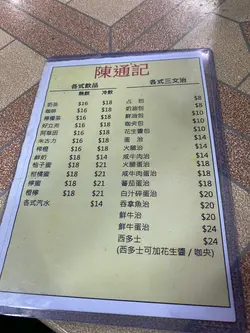 陳通記
各式飲品 各式三文治
熱飲 凍飲
奶茶 $16 $18 占包 $8
咖啡 $16 $18 奶油包 $8
檸檬茶 $16 $18 鮮油包 $8
好立克 $16 $18 咖央包 $8
阿華田 $16 $18 花生醬包 $8
朱古力 $16 $18 蛋治 $14
檸檬 $16 $18 火腿治 $14
鮮奶 $14 $18 咸牛肉治 $14
柚子蜜 $18 $21 火腿蛋治 $18
柑橘蜜 $18 $21 咸牛肉蛋治 $18
檸蜜 $18 $21 蕃茄蛋治 $18
檸檬 $18 $21 白汁砵蛋治 $20
各式汽水 $14 吞拿魚治 $20
鮮牛治 $20
鮮牛蛋治 $24
西多士 $24
(西多士可加花生醬 / 咖央)